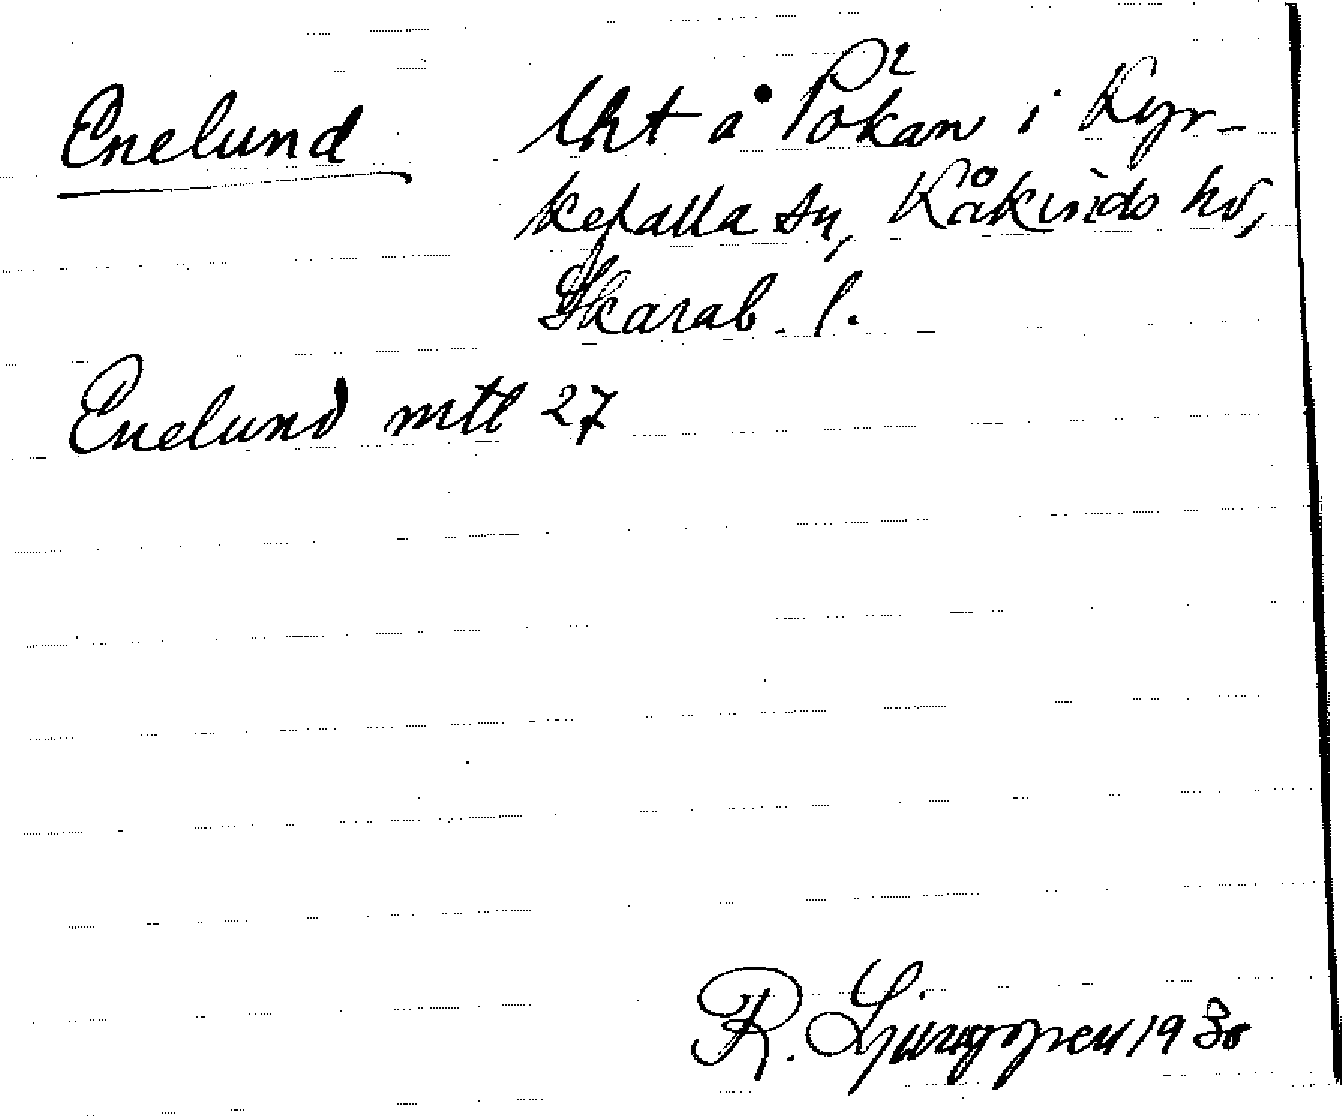 Enelund
Lht å Pokan i Kyr-
kefalla sn, Kåkinds hd,
Skarab. l.
Enelund mtl 27
R. Ljunggren 1930